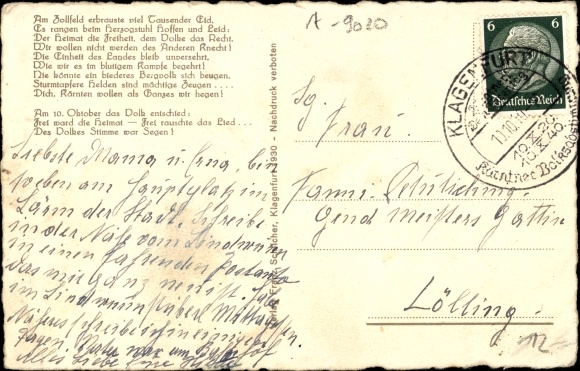 Am Zollfeld erbrauste viel Tausender Eid,
Es rangen beim Herzogstuhl Hoffen und Leid:
Der Heimat die Freiheit, dem Volke das Recht.
Wir wollen nicht werden des Anderen Knecht!
Die Einheit des Landes bleib unversehrt,
Wie wir es im blutigem Kampfe begehrt!
Nie könnte ein biederes Bergvolk sich beugen.
Sturmtapfere Helden sind mächtige Zeugen . . . .
Dich, Kärnten wollen als Ganzes wir hegen!
Am 10. Oktober das Volk entschied:
Frei ward die Heimat — Frei rauschte das Lied . . .
Des Volkes Stimme war Segen!
A-9020
6 6
Deutsches Reich
KLAGENFURT
10.X.40
Kärntner Volksabstimmung
Verlag Franz Schilcher, Klagenfurt 1930 - Nachdruck verboten
Liebste Mama u. Erna, bin
soeben am Hauptplatz im
Lärm der Stadt. Schreibe
in der Nähe vom Lindwurm
in einem fahrenden Postauto
das mir ganz neu ist.
im Lindwurmstüberl Mittagessen.
Näheres schreibe ich in einigen
Tagen. war am Bahnhof
Alles Liebe Eure
Frau
Gend Meisters Gattin
Lölling
12-